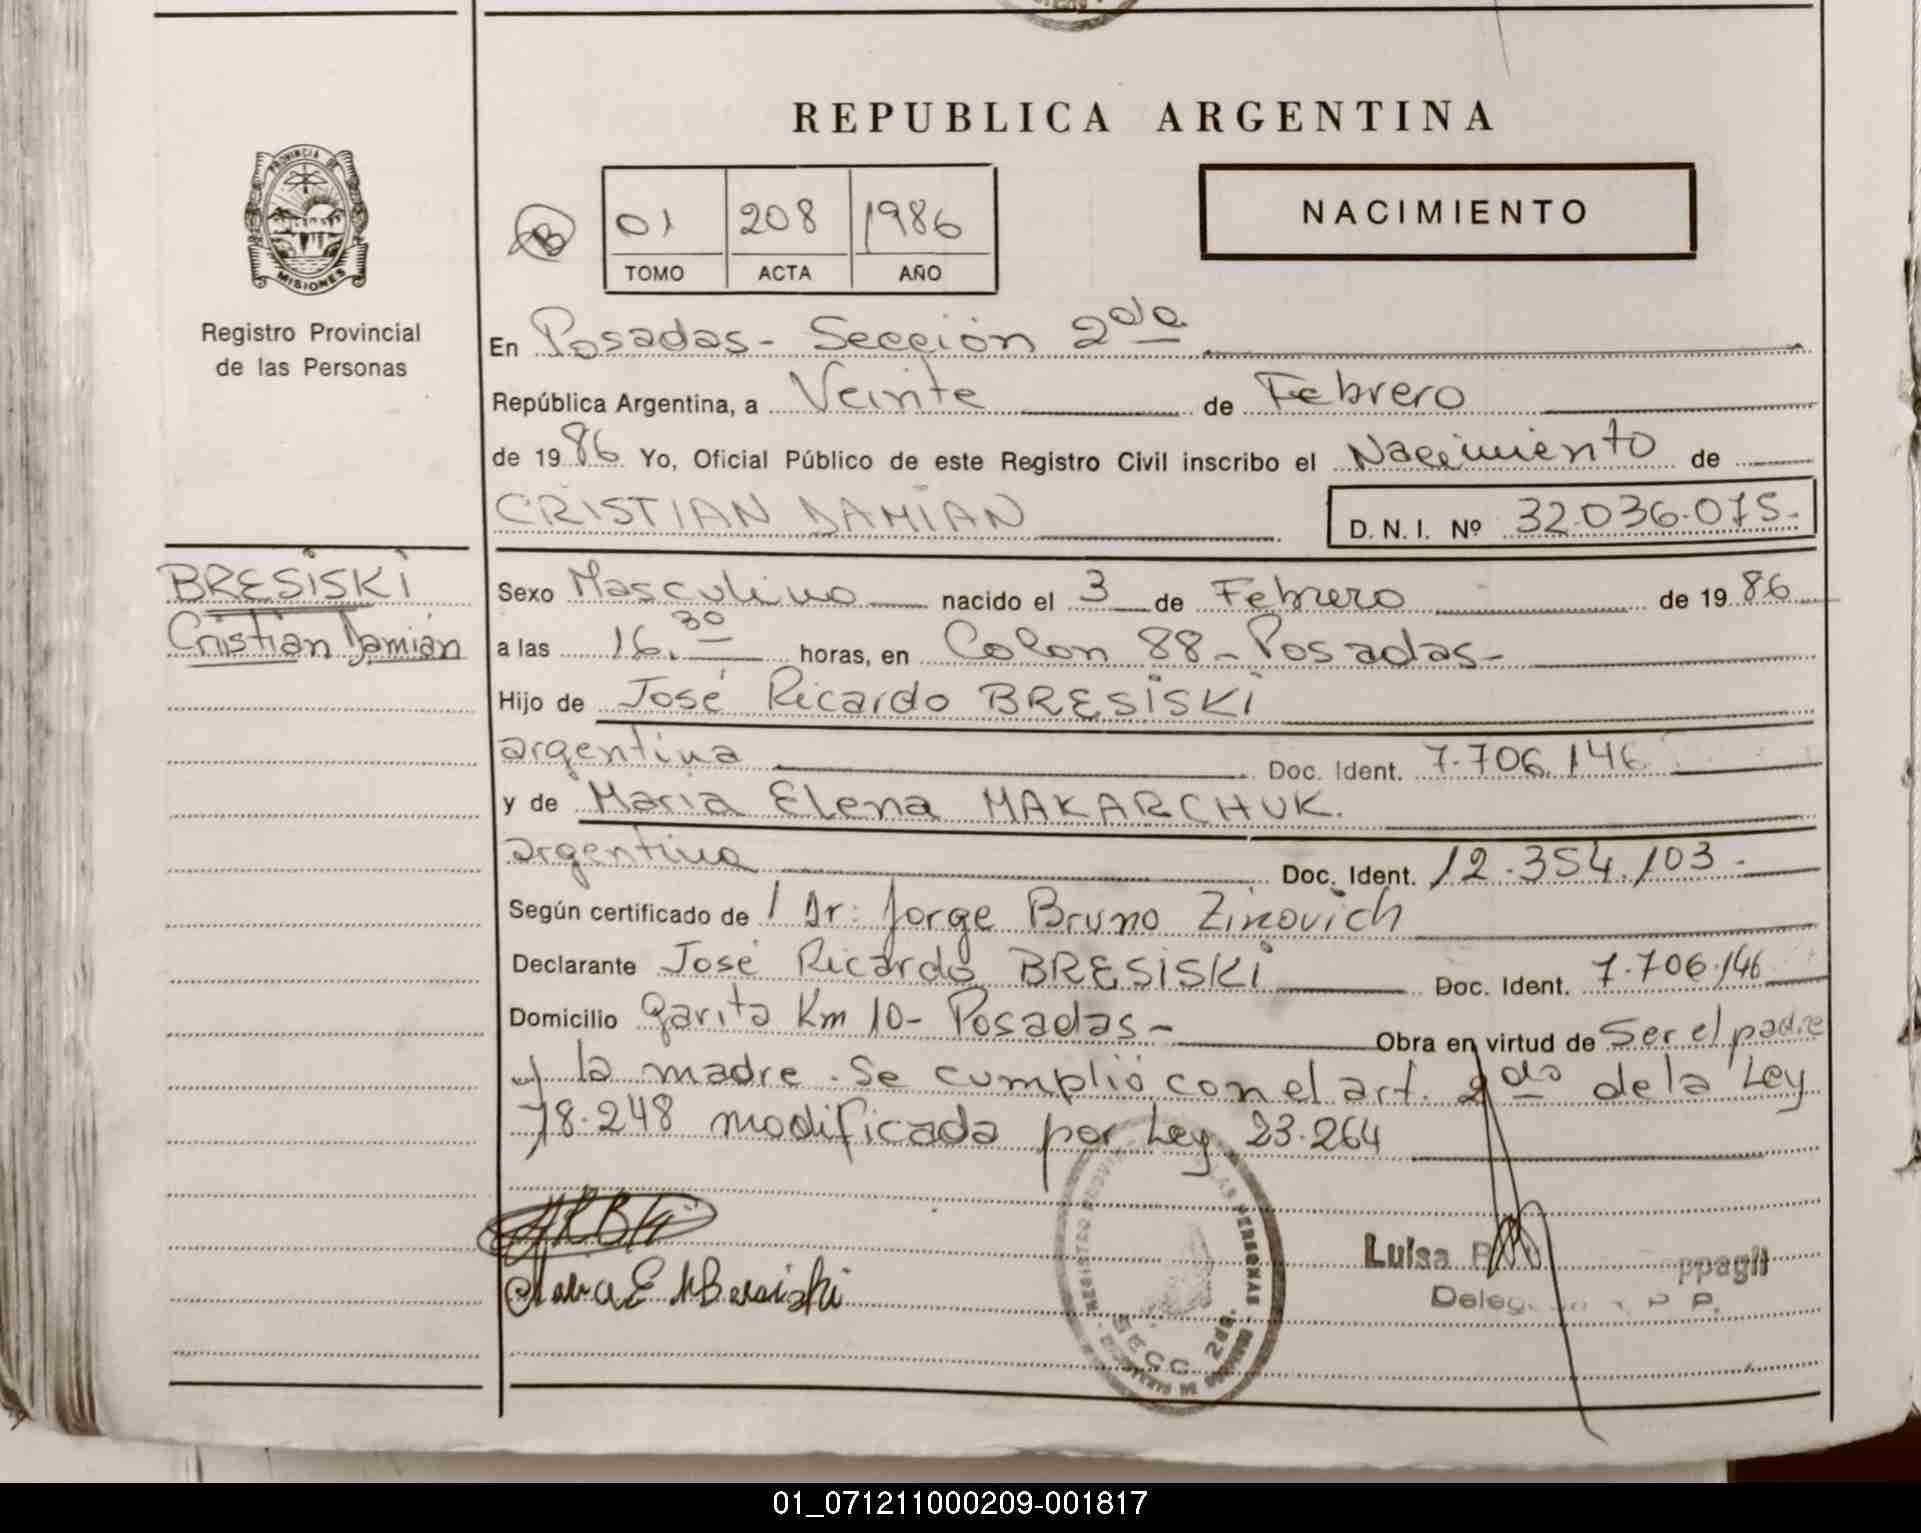 REPUBLICA ARGENTINA
PROVINCIA DE
MISIONES
Registro Provincial
de las Personas
B
01 208 1986
TOMO ACTA AÑO
NACIMIENTO
En Posadas - Sección 2da
República Argentina, a Veinte de Febrero
de 1986 Yo, Oficial Público de este Registro Civil inscribo el Nacimiento de
CRISTIAN DAMIAN D.N.I. Nº 32.036.075.-
BRESISKI
Cristian Damián
Sexo Masculino nacido el 3 de Febrero de 1986
a las 16.30 horas, en Colon 88 - Posadas -
Hijo de José Ricardo BRESISKI
argentina Doc. Ident. 7.706.146
y de Maria Elena MAKARCHUK.
argentina Doc. Ident. 12.354.103.-
Según certificado de Dr: Jorge Bruno Zinovich
Declarante José Ricardo BRESISKI Doc. Ident. 7.706.146
Domicilio Garita Km 10 - Posadas - Obra en virtud de Ser el padre
y la madre. Se cumplió con el art. 2do de la Ley
18.248 modificada por Ley 23.264
Luisa ppagli
SECC. 2da.
01_071211000209-001817